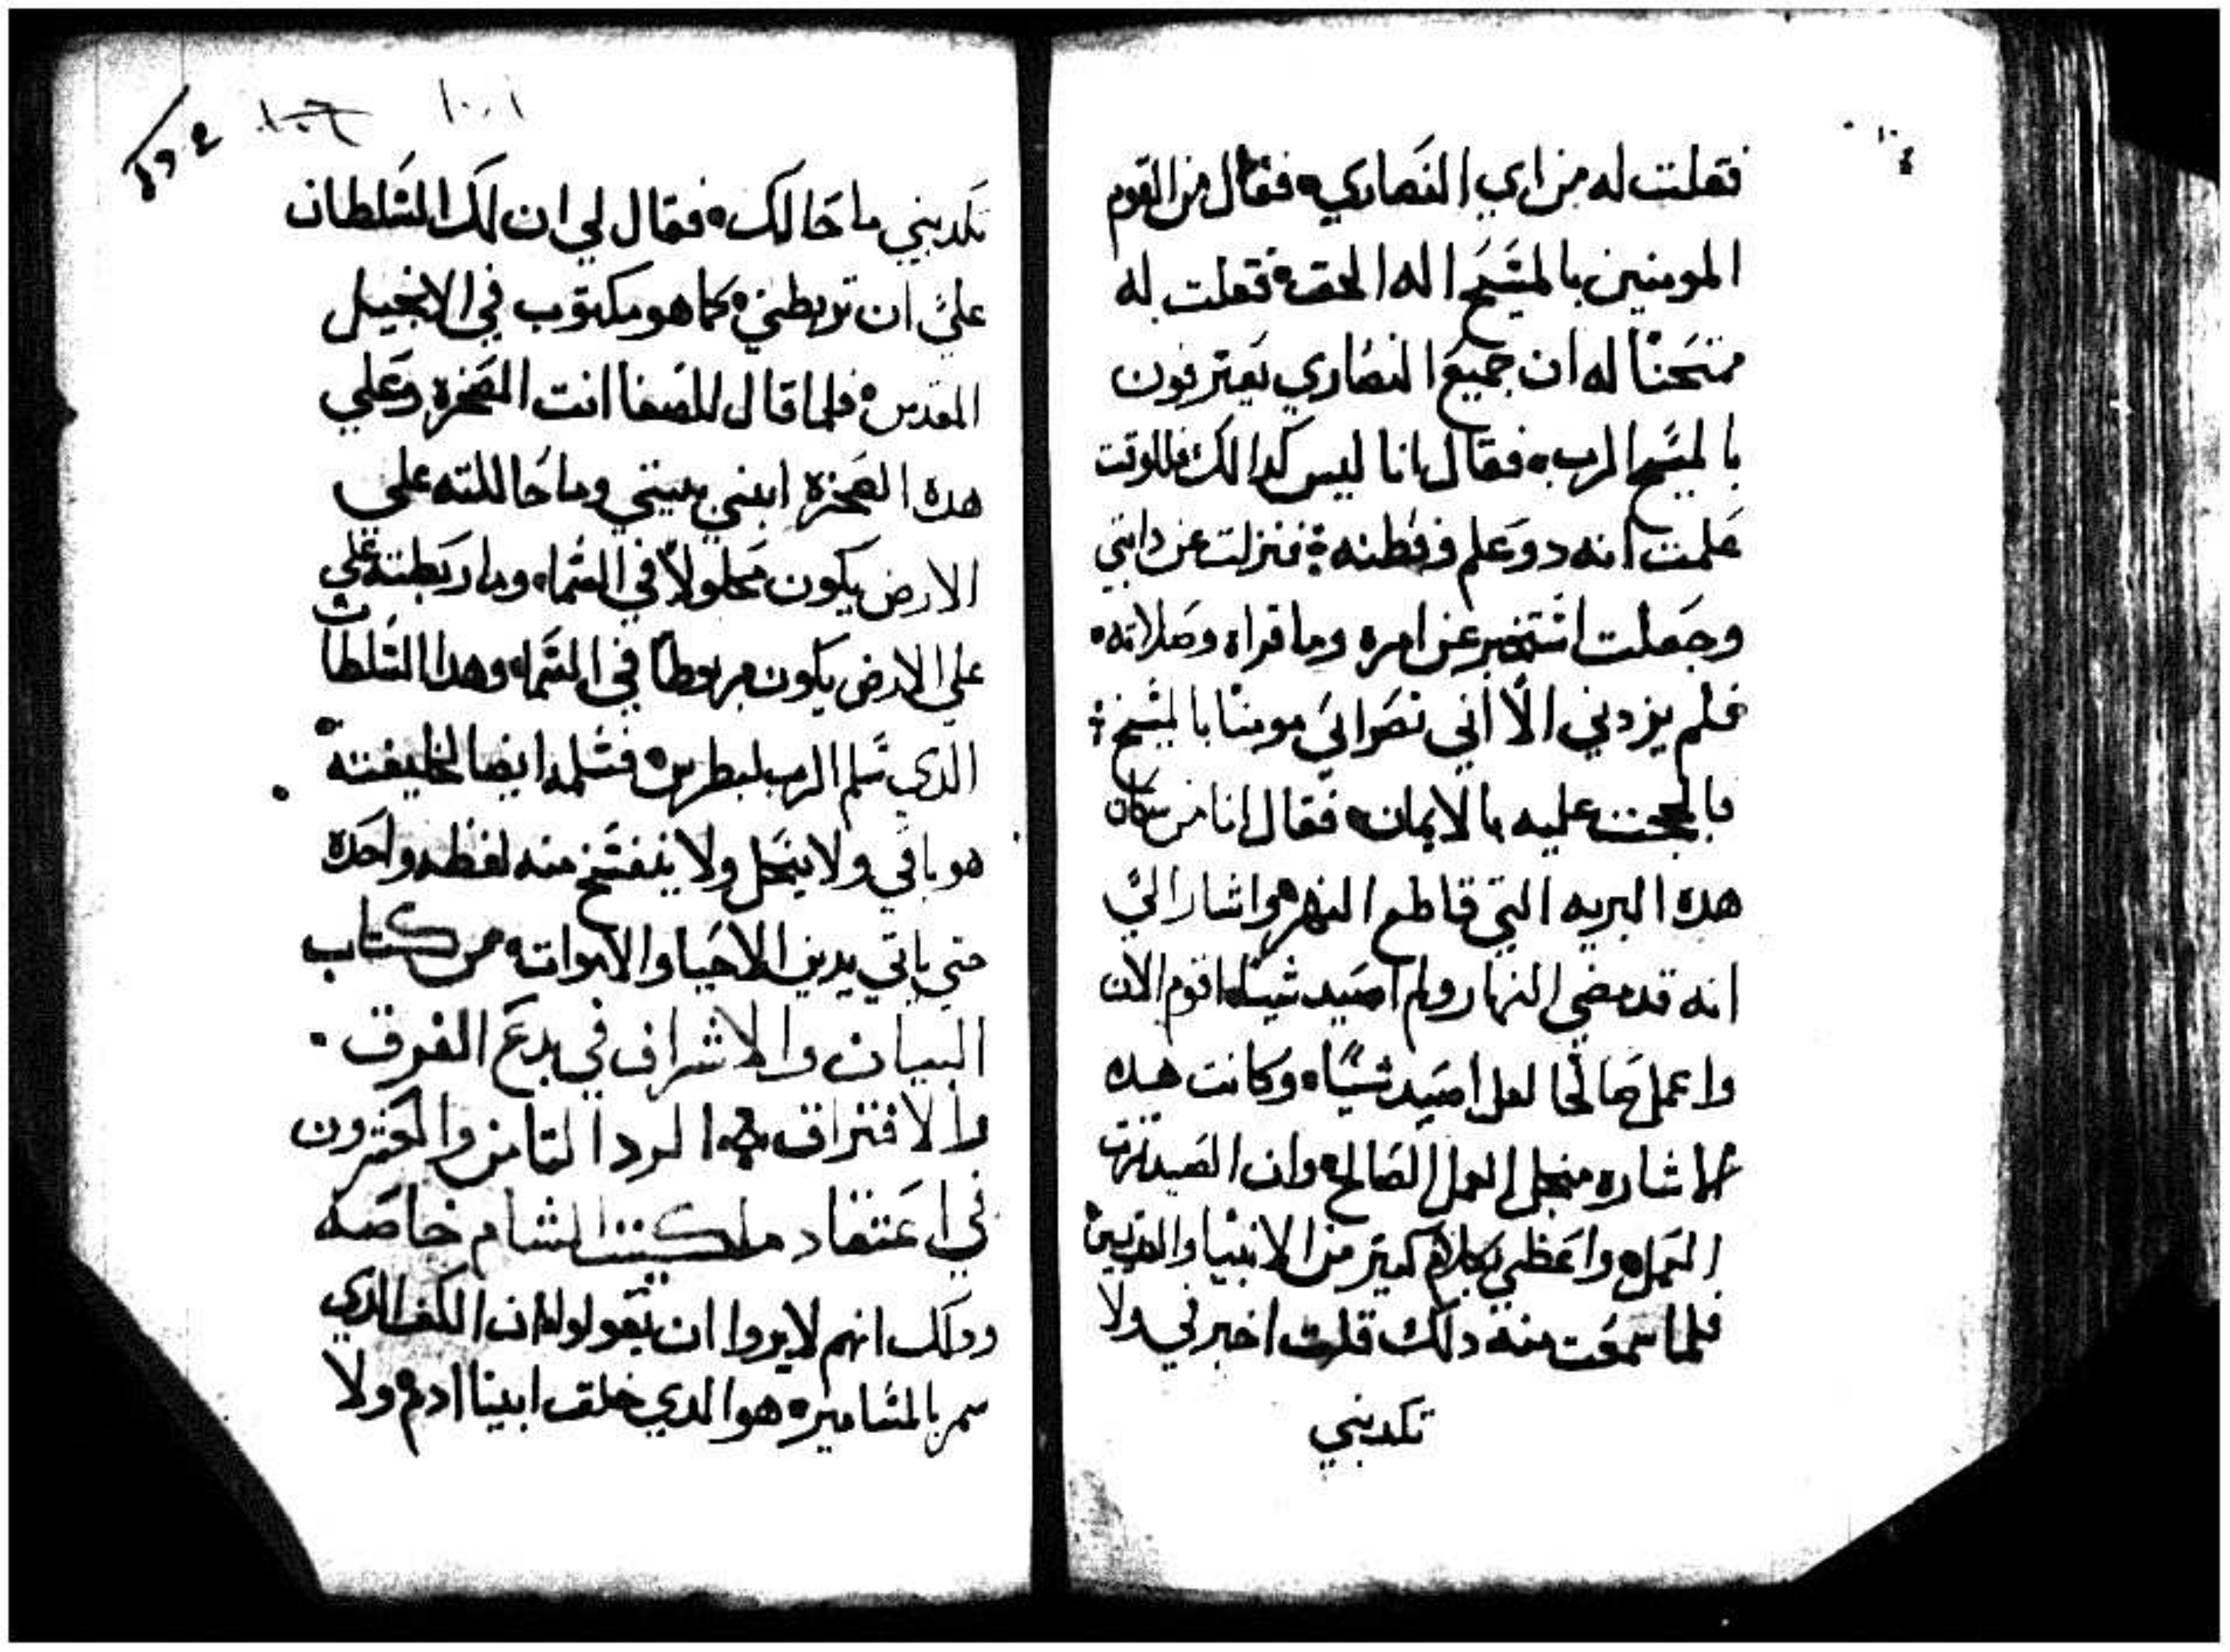 فقلت له من اي النصاري فقال من القوم
المومنين بالمسيح اله الحق فقلت له
ممتحنًا له ان جميع النصاري يعترفون
بالمسيح الرب فقال انا ليس كدالك فللوقت
علمت انه دو علم وفطنه فنزلت عن دابتي
وجعلت استخبر عن امره وما قراه وصلاته
فلم يزدني الّا اني نصراني مومنًا بالمسيح
عليه بالايمان فقال انا من سكان
هده البريه التي قاطع النهر واشار اليّ
انه قد مضي النهار ولم اصيد شيًا اقوم الان
واعمل صالحًا لعل اصيد شيًا وكانت هده
الاشاره منجل العمل الصالح وان الصيد
العمل واعظني بكلام كتير من الانبيا والقديسين
فلما سمعت منه دلك قلت اخبرني ولا
تكدبني
١٠١
تكدبني ما حالك فقال لي ان لك السلطان
عليّ ان تربطني كما هو مكتوب في الانجيل
المقدس فلما قال للصفا انت الصخره وعلي
هده الصخرة ابني بيعتي وما حاللته علي
الارض يكون محلولًا في السماء وما ربطته علي
علي الارض يكون مربوطًا في السماء وهدا السلطان
الدي سلم الرب لبطرس فسلمه ايضا لخليفته
هو باقي ولا ينحل ولا ينفسخ منه لفظه واحدة
حتي ياتي يدين الاحيا والاموات من كتاب
البيان والاشراف في بدع الفرق
والافتراق الرد التامن والعشرون
في اعتقاد ملكيننا الشام خاصة
ودلك انهم لا يروا ان يقولوا ان الكف الدي
سمر بالمسامير هو الدي خلق ابينا ادم ولا